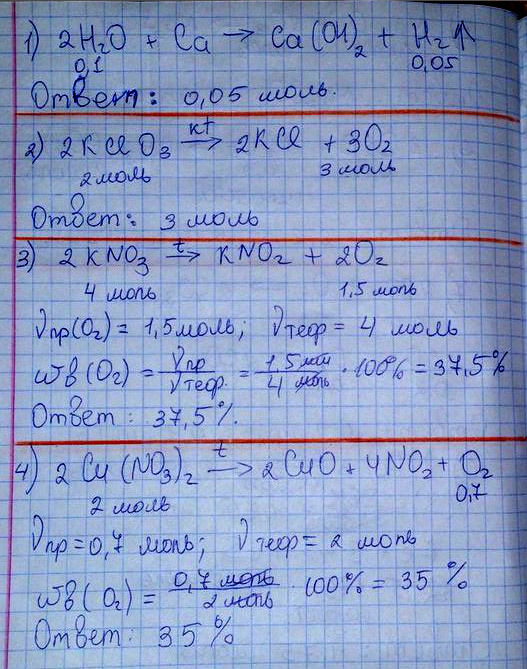 1) 2H₂O + Ca → Ca(OH)₂ + H₂↑
0,1 0,05
Ответ: 0,05 моль.
2) 2KClO₃ →kt 2KCl + 3O₂
2 моль 3 моль
Ответ: 3 моль
3) 2KNO₃ →t KNO₂ + 2O₂
4 моль 1,5 моль
νпр(O₂) = 1,5 моль; νтеор = 4 моль
wв(O₂) = νпр/νтеор. = 1,5 моль/4 моль · 100% = 37,5%
Ответ: 37,5%.
4) 2Cu(NO₃)₂ →t 2CuO + 4NO₂ + O₂
2 моль 0,7
νпр = 0,7 моль; νтеор = 2 моль
wв(O₂) = 0,7 моль/2 моль 100% = 35%
Ответ: 35%